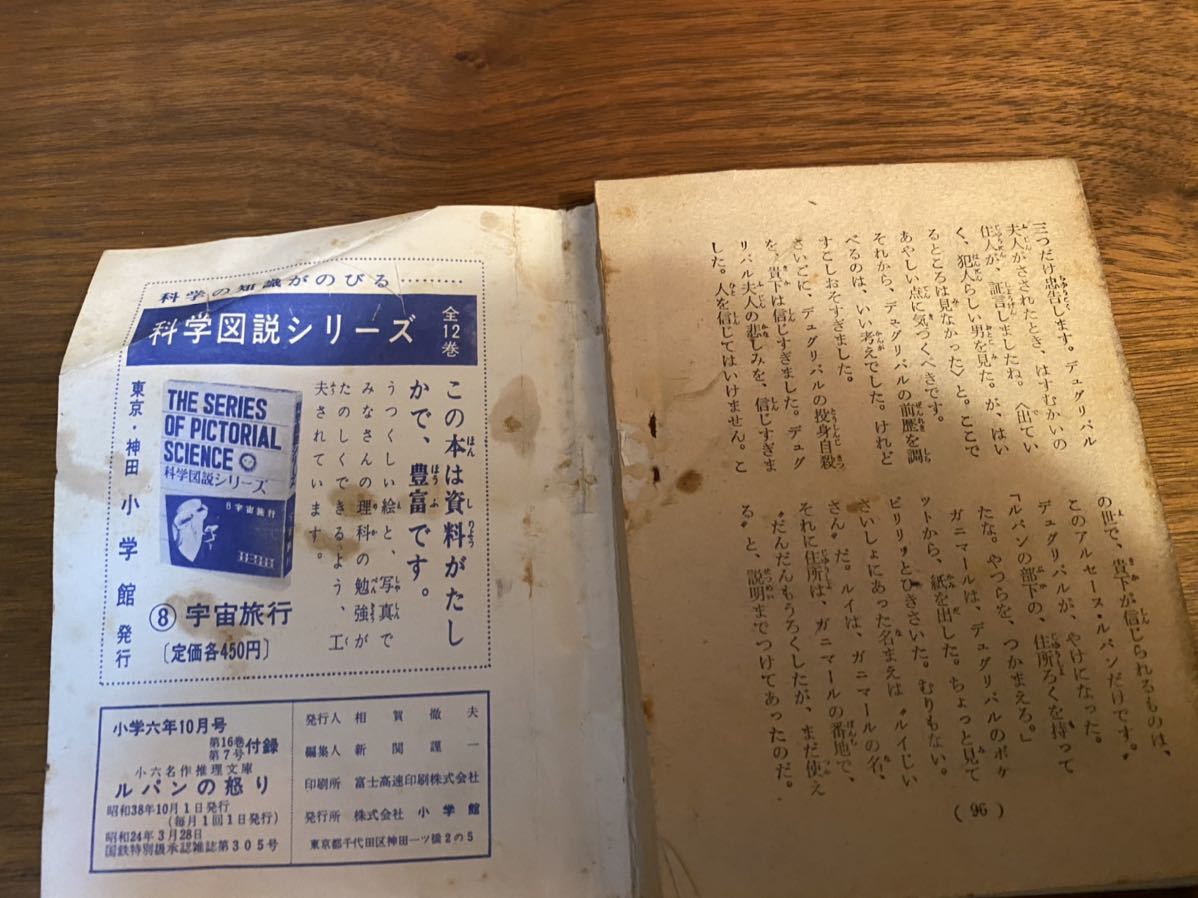 三つだけ忠告します。デュグリバル
夫人がさされたとき、はすむかいの
住人が、証言しましたね。〈出てい
く、犯人らしい男を見た。が、はい
るところは見なかった〉と。ここで
あやしい点に気づくべきです。
それから、デュグリバルの前歴を調
べるのは、いい考えでした。けれど
すこしおそすぎました。
さいごに、デュグリバルの投身自殺
を、貴下は信じすぎました。デュグ
リバル夫人の悲しみを、信じすぎま
した。人を信じてはいけません。こ
の世で、貴下が信じられるものは、
このアルセーヌ・ルパンだけです。〟
デュグリバルが、やけになった。
「ルパンの部下の、住所ろくを持って
たな。やつらを、つかまえろ。」
ガニマールは、デュグリバルのポケ
ットから、紙を出した。ちょっと見て
ビリリッとひきさいた。むりもない。
さいしょにあった名まえは〝ルイじい
さん〟だ。ルイは、ガニマールの名。
それに住所は、ガニマールの番地で、
〝だんだんもうろくしたが、まだ使え
る〟と、説明までつけてあったのだ。
(96)
科学の知識がのびる………
科学図説シリーズ 全12巻
この本は資料がたし
かで、豊富です。
うつくしい絵と、写真で
みなさんの理科の勉強が
たのしくできるよう、工
夫されています。
THE SERIES
OF PICTORIAL
SCIENCE
科学図説シリーズ
8 宇宙旅行
⑧ 宇宙旅行
〔定価各450円〕
東京・神田 小学館発行
小学六年10月号
第16巻
第7号 付録
小六名作推理文庫
ルパンの怒り
昭和38年10月1日発行
(毎月1回1日発行)
昭和24年3月28日
国鉄特別扱承認雑誌第305号
発行人 相賀徹夫
編集人 新関謹一
印刷所 富士高速印刷株式会社
発行所 株式会社 小学館
東京都千代田区神田一ツ橋2の5